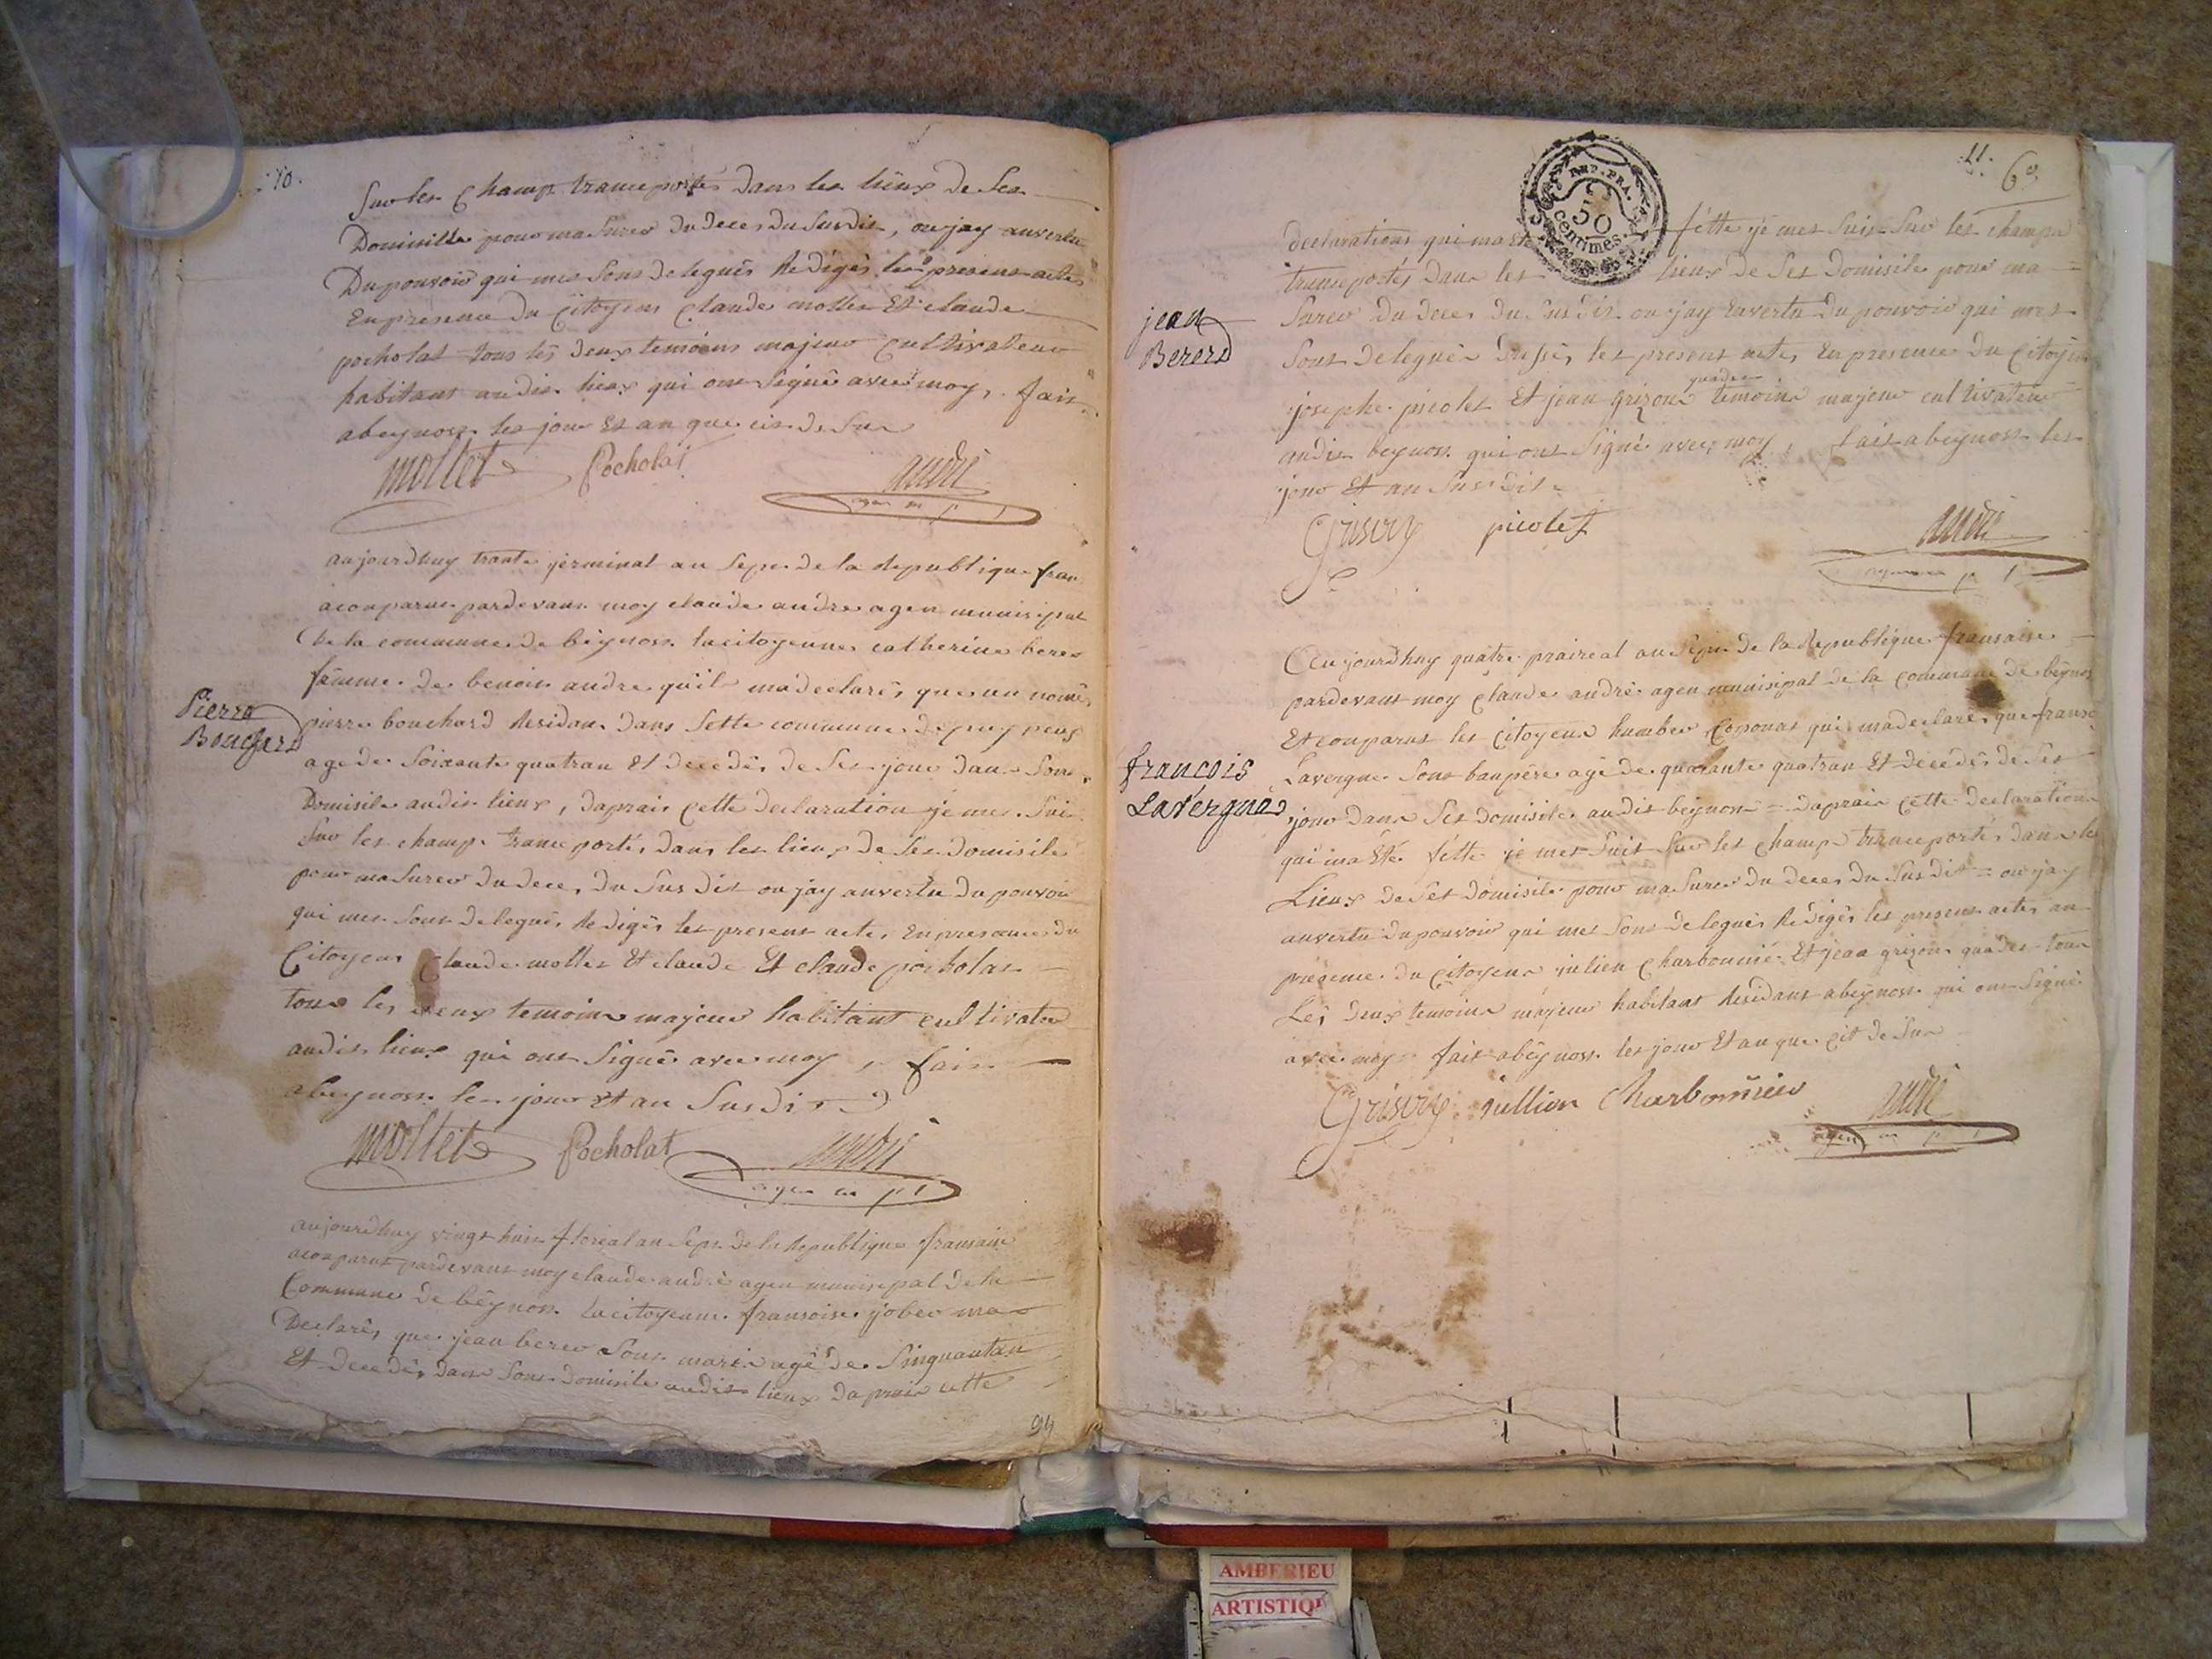 10.
Sur les champt tranceportés dans les lieux de ses
Domicille pour ma surer du deces du susdit, ou jay anvertu
Du pouvoir qui mes sont delegués redigés les present actes
En presence du Citoyens Claude mollet Et claude
pocholat tous les deux temoins majeur cultivateur
habitant audit lieux qui ont signé avec moy, fait
abeynost les jour Et an que cit de sur
mollet Pocholat andré
agen m p l
aujourdhuy trante jerminal an sept de la republique fran
aconparue pardevant moy claude andre agen munisipal
De la commune de beynost la citoyenne catherine berer
fámme de benoit andre quil ma declarés que un nomé
Pierre
Bouchard
pierre bouchard residant dans sette commune depuy peux
agé de soixante quatran Et decedés de ses jour dans sont
Domisile audit lieux, daprais cette declaration je mes suis
sur les champt trance portés dans les lieux de ses domisile
pour ma surer du deces du sus dit ou jay anvertu du pouvoir
qui mes sont delegués redigés les present actes En presance du
Citoyens Claude mollet Et claude Et claude pocholat
tous les deux temoins majeur habitant cultivateur
audit lieux qui ont signés avec moy, fait
abeynost les jour Et an susdit
mollet Pocholat andré
agen m p l
aujourdhuy vingt huit floréal an sept de la republique fransaise
aconparut pardevant moy claude andré agen munisipal de la
Commune de beynost la citoyenne fransoise jober ma
Declarés que jean berer sont mari agé de sinquantan
Et decedés dans sont domisile audit lieux daprais cette
94
11.
6e
REP. FRA.
50
centimes.
declarations qui ma Eté fétte je mes suis sur les champt
tranceportés dans les lieux de ses domisile pour ma
jean
Bererd
surer du deces du susdit ou jay envertu du pouvoir qui mes
sont delegués dressés les present actes En presence du Citoyen
quader
josephe picolet Et jean grizons temoins majeur cultivateur
audit beynost qui ont signé avec moy, fait abeynost les
jour Et an susdit
Grisons picolet andré
agen m p l
Aujourdhuy quatre praireal an sept de la republique fransaise
pardevant moy claude andré agen munisipal de la commune de beynost
Et conparut les Citoyens humber Coponat qui ma declarés que franso
francois
Lavergne
Lavergne sont baupére agé de quarante quatran Et decedés de ses
jour dans ses domisile audit beynost = daprais cette declaration
qui ma Eté fétte je mes suit sur les champt tranceportés dans les
Lieux de ses domisile pour ma surer du deces du susdit = ou jay
anvertu du pouvoir qui mes sont delegués redigés les present actes an
presence du citoyens julien Charbonnié Et jean grizons quader tous
Les deux temoins majeur habitant residant abeynost qui ont signé
avec moy fait abeynost les jour Et an que cit de sur
Grisons jullien Charbonnier andré
agen m p l
AMBERIEU
ARTISTIQU